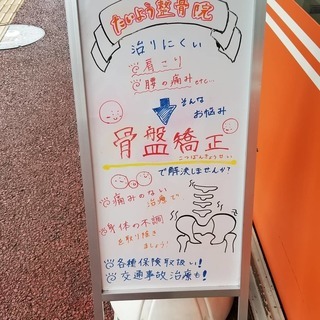 たいよう整骨院
治りにくい
肩こり
腰の痛みetc...
そんな
お悩み
骨盤矯正
こつばんきょうせい
で解決しませんか?
痛みのない
治療で、
身体の不調
を取り除き
ましょう!
各種保険取扱い!
交通事故治療も!